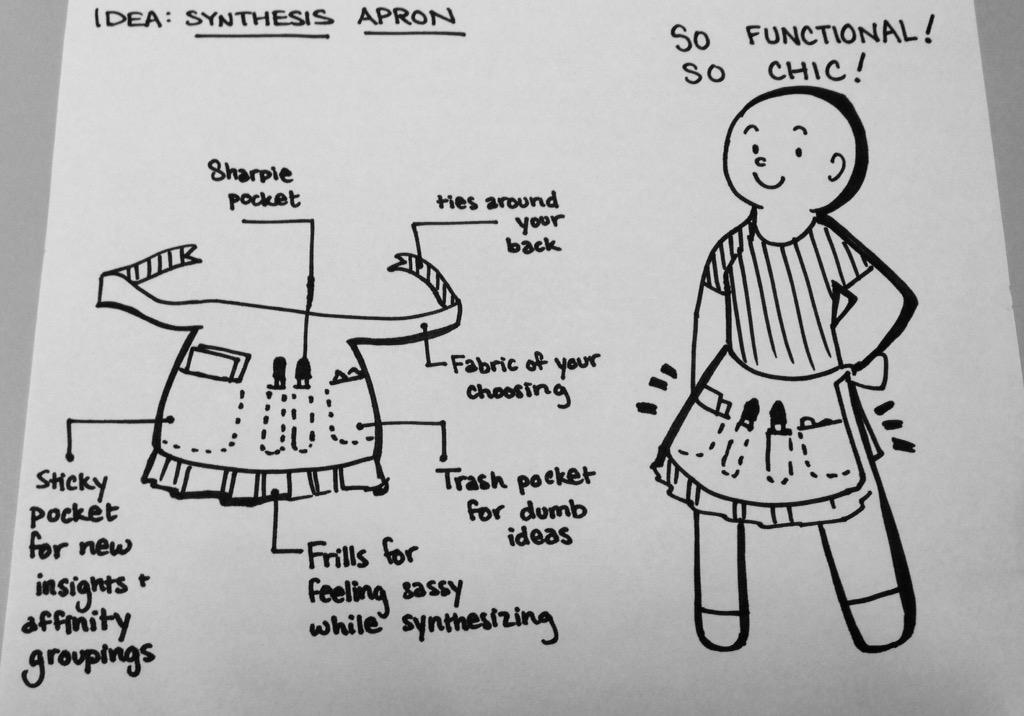 IDEA: SYNTHESIS APRON
SO FUNCTIONAL!
SO CHIC!
Sharpie
pocket
ties around
your
back
Fabric of your
choosing
Sticky
pocket
for new
insights +
affinity
groupings
Trash pocket
for dumb
ideas
Frills for
feeling sassy
while synthesizing